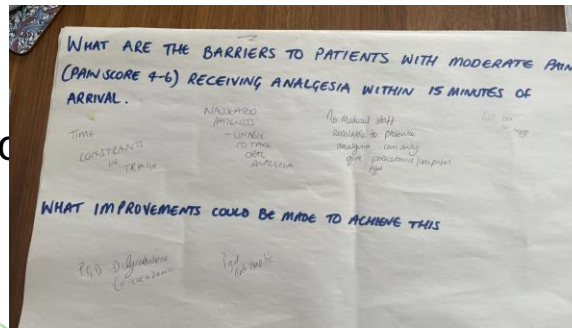 WHAT ARE THE BARRIERS TO PATIENTS WITH MODERATE PAIN
(PAIN SCORE 4-6) RECEIVING ANALGESIA WITHIN 15 MINUTES OF
ARRIVAL.
TIME
CONSTRAINTS
IN TRIAGE
NAUSEATED
PATIENTS
- UNABLE
TO TAKE
ORAL
ANALGESIA
No medical staff
available to prescribe
analgesia - can only
give paracetamol/ibuprofen
pgd
WHAT IMPROVEMENTS COULD BE MADE TO ACHIEVE THIS
PGD Dihydrocodeine
Pgd